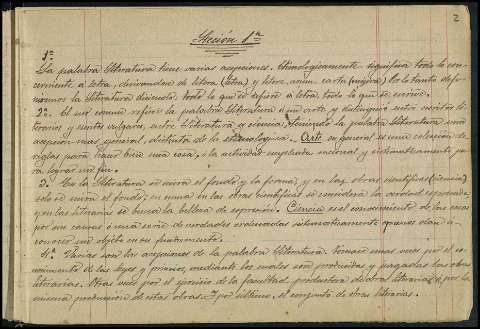 2
Lección 1ª
1ª
La palabra Literatura tiene varias acepciones. Etimologicamente significa todo lo con-
cerniente a letra, derivandose de litera (letra) y Por lo tanto defi-
naremos la Literatura diciendo, todo lo que se refiere a letra, todo lo que se escribe.
2ª. El uso comun refiere la palabra Literatura a un arte, y distinguió entre escritos li-
terarios y vulgares, entre Literatura y ciencia, teniendo la palabra Literatura una
acepcion mas general, distinta de la etimologica. Arte en general es una coleccion de
reglas para hacer bien una cosa, o la actividad empleada racional y sistematicamente pa-
ra lograr un fin.
3. En la Literatura se mira el fondo y la forma; y en las obras cientificas (ciencia)
solo se mira el fondo; en suma en las obras cientificas se considera la verdad expresada
y en las literarias se busca la belleza de expresion. Ciencia es el conocimiento de las cosas
por sus causas o una serie de verdades sistematicamente que nos dan a
conocer un objeto en su fundamento.
4ª. Varias son las acepciones de la palabra Literatura. Tomase unas veces por el co-
nocimiento de las leyes y mediante los cuales son producidas y las obras
literarias. Otras veces por el ejercicio de la facultad productora de obras literarias, o por la
misma produccion de estas obras. Y por último, el conjunto de obras literarias.